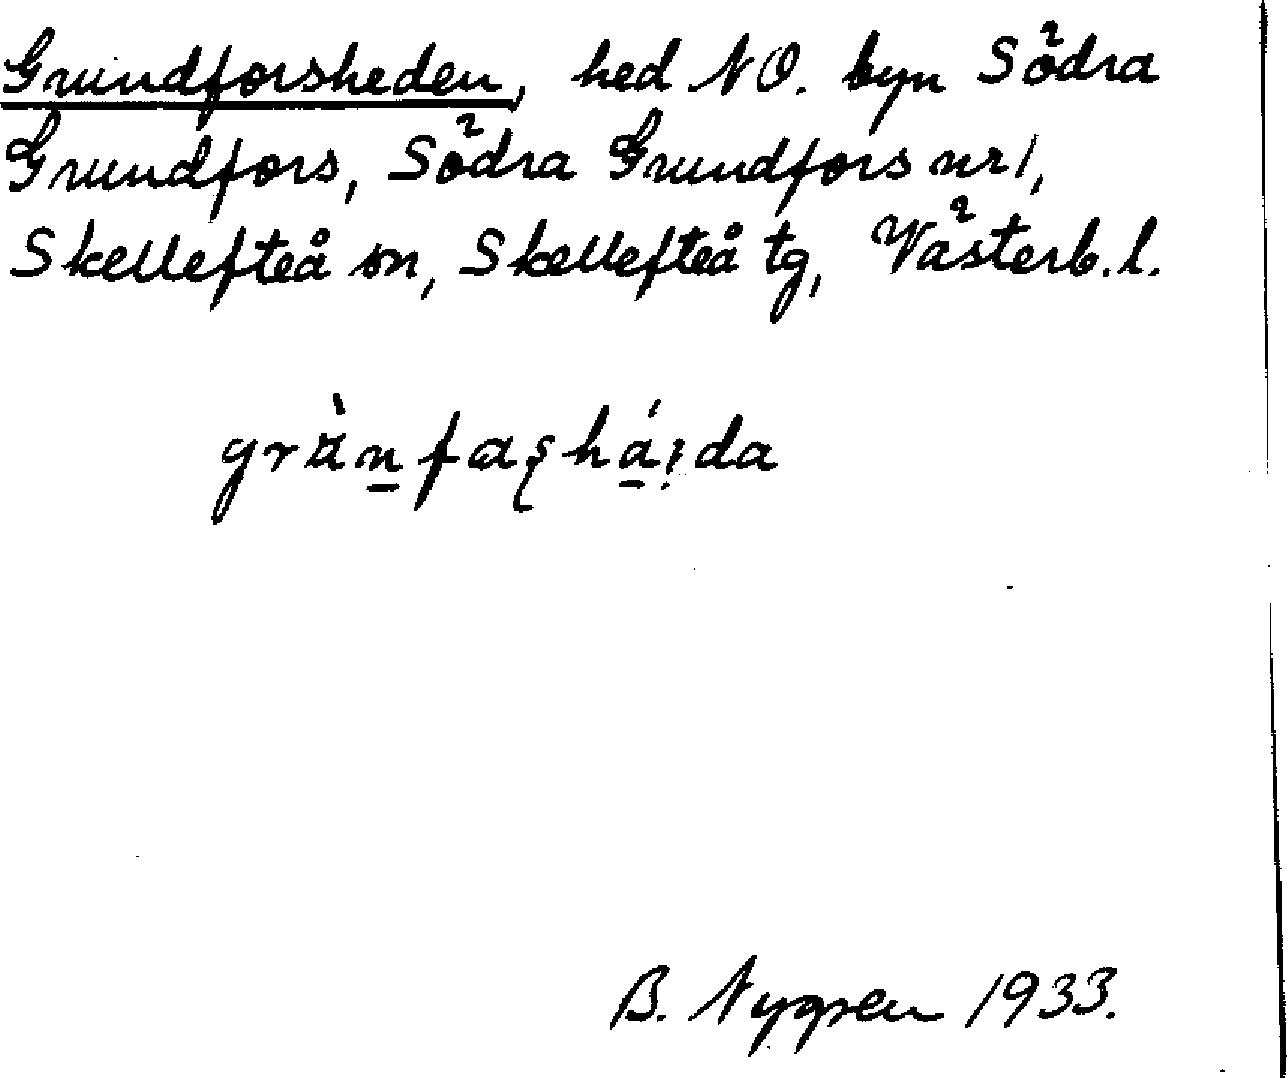 Grundforsheden, hed NO. byn Södra
Grundfors, Södra Grundfors nr 1,
Skellefteå sn, Skellefteå tg, Västerb. l.
B. Nygren 1933.